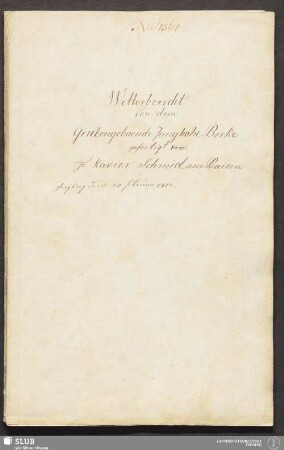 No. 1561
Wetterbericht
von dem
Grubengebaeude Junghohe Birke
gefertigt von
Fr. Xavier Schmid aus Baiern
Freyberg d. 10 Februar
SLUB
Wir führen Wissen.
UNIVERSITÄTSBIBLIOTHEK
FREIBERG